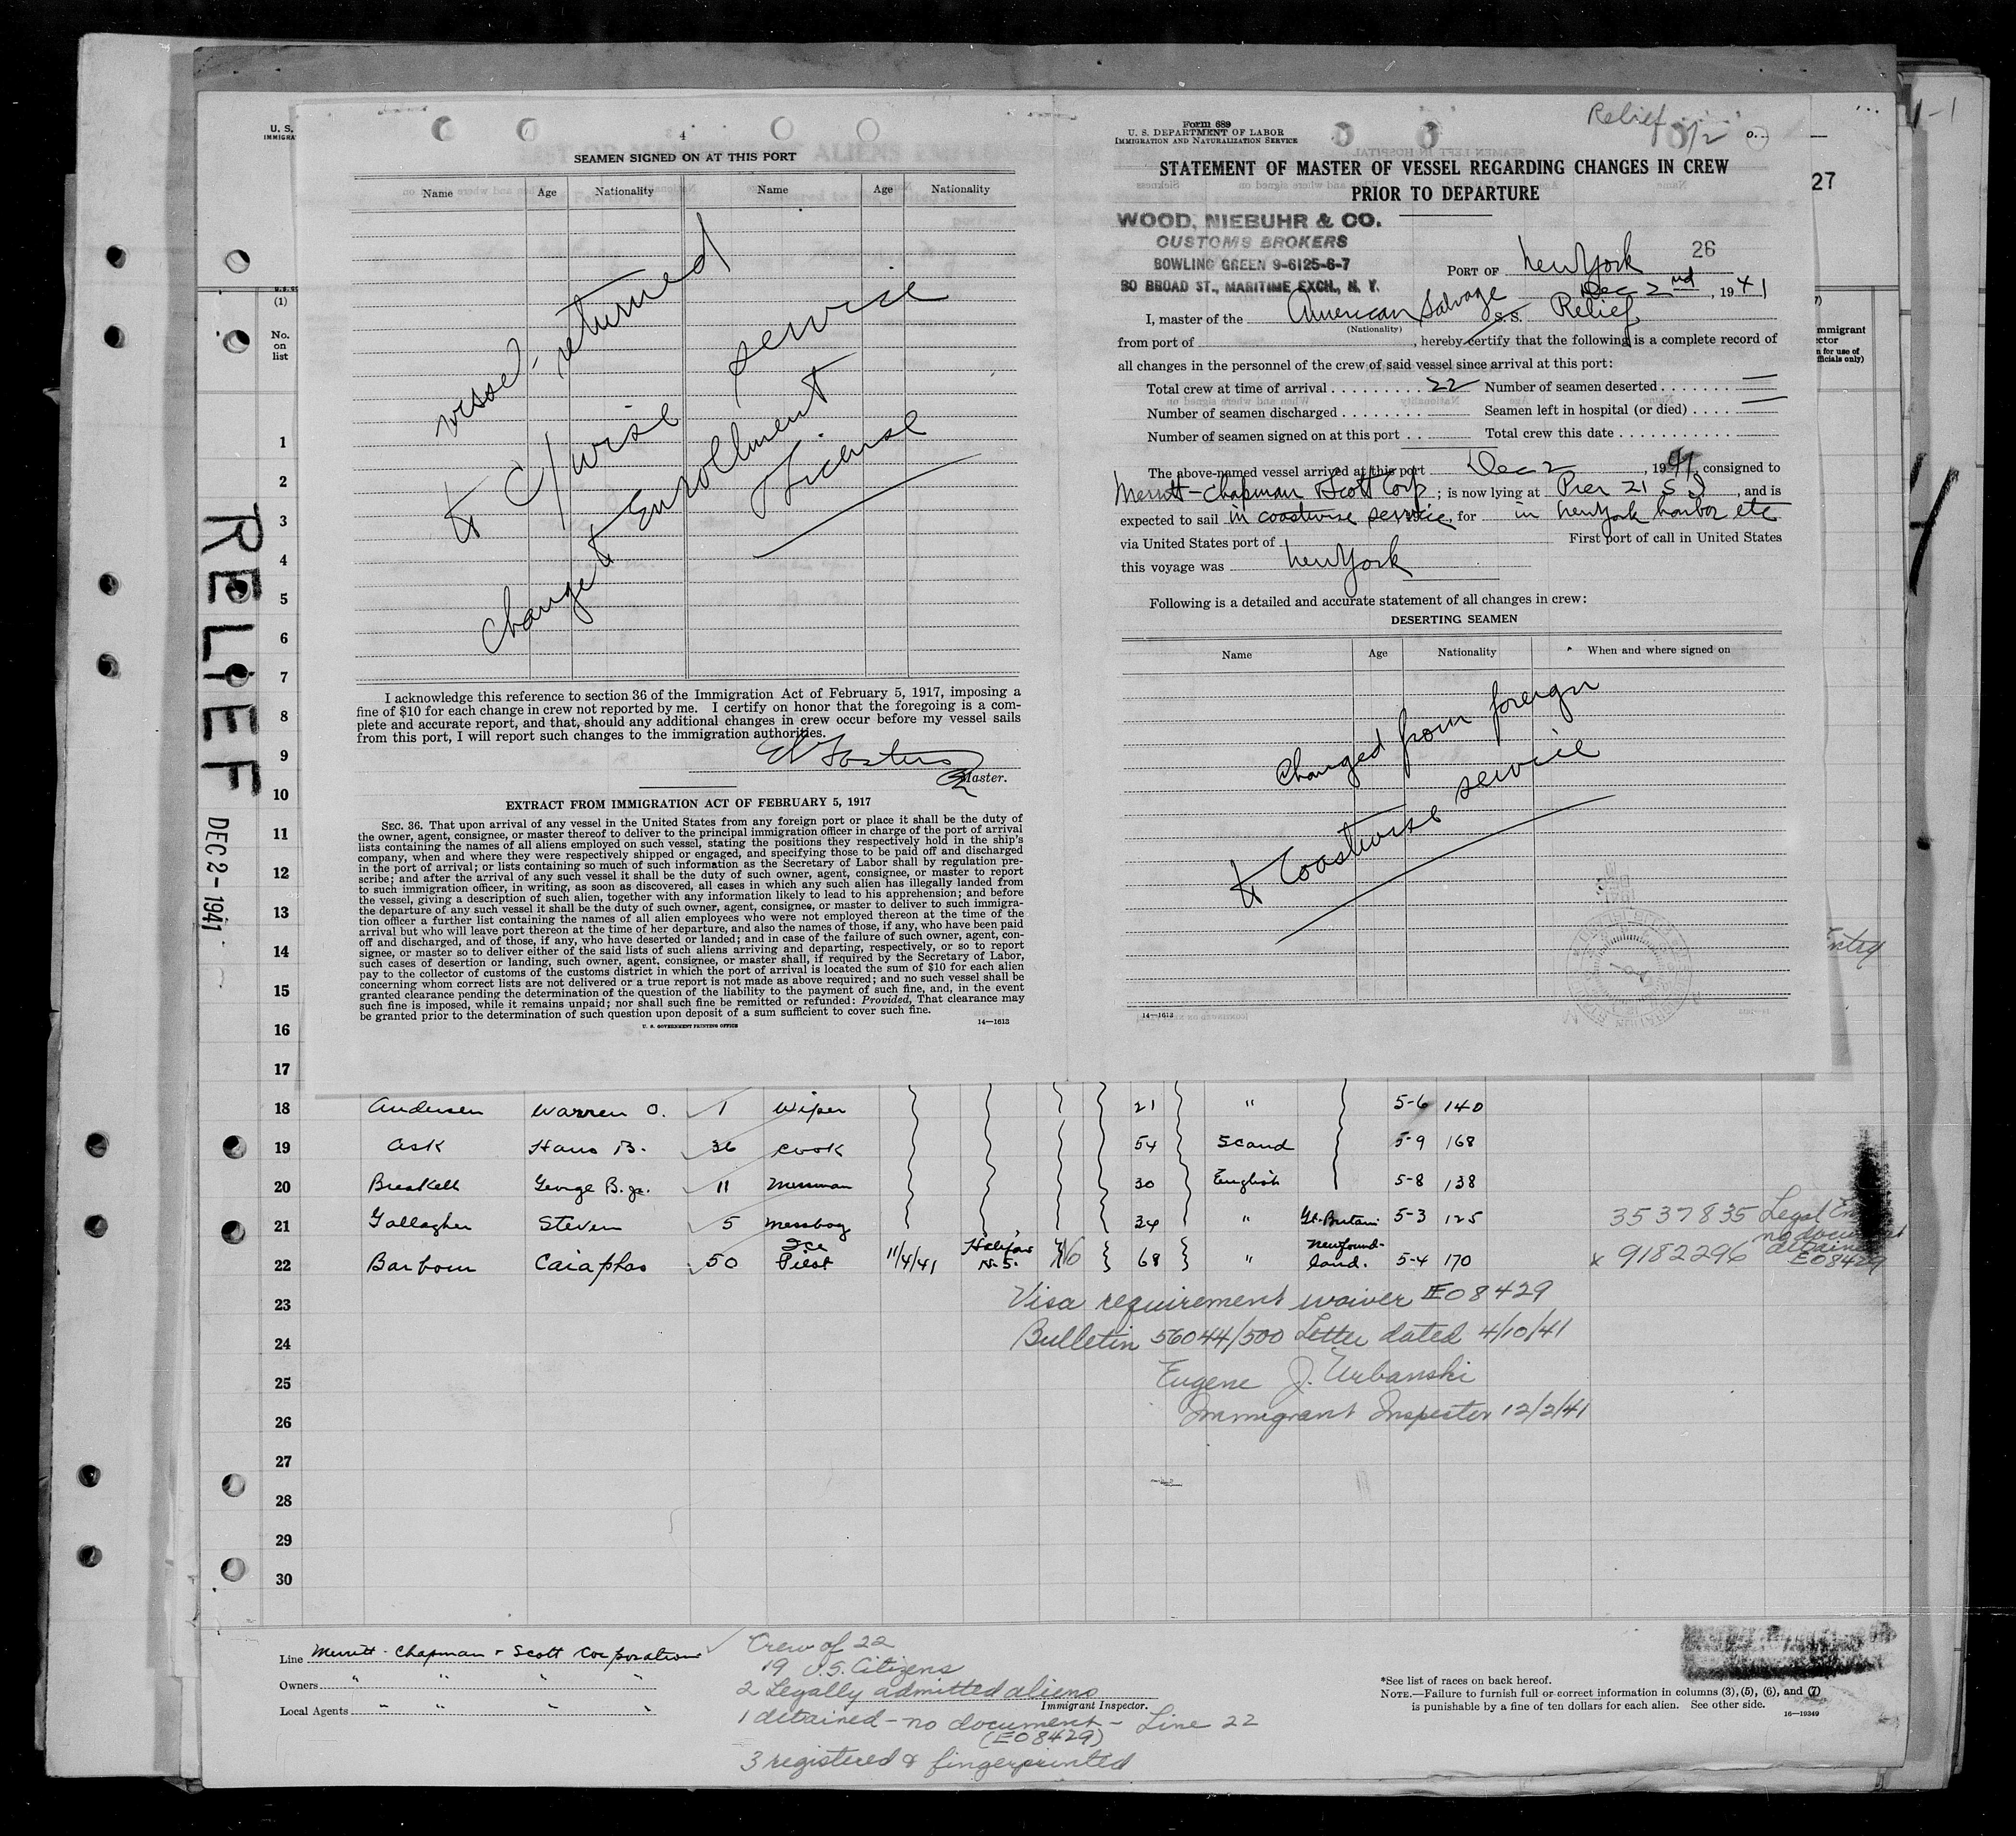 RELIEF
DEC 2-1941
U. S.
IMMIGRA
(1)
No.
on
list
4
SEAMEN SIGNED ON AT THIS PORT
Name Age Nationality Name Age Nationality
vessel returned
to C/wise service
change to Enrollment
License
I acknowledge this reference to section 36 of the Immigration Act of February 5, 1917, imposing a
fine of $10 for each change in crew not reported by me. I certify on honor that the foregoing is a com-
plete and accurate report, and that, should any additional changes in crew occur before my vessel sails
from this port, I will report such changes to the immigration authorities.
Master.
EXTRACT FROM IMMIGRATION ACT OF FEBRUARY 5, 1917
SEC. 36. That upon arrival of any vessel in the United States from any foreign port or place it shall be the duty of
the owner, agent, consignee, or master thereof to deliver to the principal immigration officer in charge of the port of arrival
lists containing the names of all aliens employed on such vessel, stating the positions they respectively hold in the ship's
company, when and where they were respectively shipped or engaged, and specifying those to be paid off and discharged
in the port of arrival; or lists containing so much of such information as the Secretary of Labor shall by regulation pre-
scribe; and after the arrival of any such vessel it shall be the duty of such owner, agent, consignee, or master to report
to such immigration officer, in writing, as soon as discovered, all cases in which any such alien has illegally landed from
the vessel, giving a description of such alien, together with any information likely to lead to his apprehension; and before
the departure of any such vessel it shall be the duty of such owner, agent, consignee, or master to deliver to such immigra-
tion officer a further list containing the names of all alien employees who were not employed thereon at the time of the
arrival but who will leave port thereon at the time of her departure, and also the names of those, if any, who have been paid
off and discharged, and of those, if any, who have deserted or landed; and in case of the failure of such owner, agent, con-
signee, or master so to deliver either of the said lists of such aliens arriving and departing, respectively, or so to report
such cases of desertion or landing, such owner, agent, consignee, or master shall, if required by the Secretary of Labor,
pay to the collector of customs of the customs district in which the port of arrival is located the sum of $10 for each alien
concerning whom correct lists are not delivered or a true report is not made as above required; and no such vessel shall be
granted clearance pending the determination of the question of the liability to the payment of such fine, and, in the event
such fine is imposed, while it remains unpaid; nor shall such fine be remitted or refunded: Provided, That clearance may
be granted prior to the determination of such question upon deposit of a sum sufficient to cover such fine.
U. S. GOVERNMENT PRINTING OFFICE 14—1613
Relief
Form 689
U. S. DEPARTMENT OF LABOR
IMMIGRATION AND NATURALIZATION SERVICE
STATEMENT OF MASTER OF VESSEL REGARDING CHANGES IN CREW
PRIOR TO DEPARTURE
27
WOOD, NIEBUHR & CO.
CUSTOMS BROKERS
BOWLING GREEN 9-6125-6-7
80 BROAD ST., MARITIME EXCH., N. Y.
26
PORT OF New York
Dec 2nd, 1941
I, master of the American Salvage S.S. Relief
(Nationality)
from port of , hereby certify that the following is a complete record of
all changes in the personnel of the crew of said vessel since arrival at this port:
Total crew at time of arrival 22 Number of seamen deserted —
Number of seamen discharged Seamen left in hospital (or died) —
Number of seamen signed on at this port Total crew this date
The above-named vessel arrived at this port Dec 2, 1941, consigned to
Merritt-Chapman Scott Corp; is now lying at Pier 21 S I, and is
expected to sail in coastwise service, for in New York harbor etc
via United States port of First port of call in United States
this voyage was New York
Following is a detailed and accurate statement of all changes in crew:
DESERTING SEAMEN
Name Age Nationality When and where signed on
Changed from foreign
to Coastwise service
14—1613
mmigrant
ector
n for use of
fficials only)
Entry
1
2
3
4
5
6
7
8
9
10
11
12
13
14
15
16
17
18 Andersen Warren O. 1 Wiper 21 " 5-6 140
19 Ask Hans B. 36 Cook 54 Scand 5-9 168
20 Breskell George B. jr. 11 Messman 30 English 5-8 138
21 Gallagher Steven 5 Messboy 34 " Gt. Britain 5-3 125 3537835 Legal En
22 Barbour Caiaphas 50 Ice Pilot 11/4/41 Halifax N.S. No 68 " Newfound-land. 5-4 170 x 9182296 no document detained E08429
23 Visa requirement waiver E08429
24 Bulletin 56044/500 Letter dated 4/10/41
25 Eugene J. Urbanski
26 Immigrant Inspector 12/2/41
27
28
29
30
Line Merritt-Chapman & Scott Corporation
Owners " " " "
Local Agents " " " "
Crew of 22
19 U.S. Citizens
2 Legally admitted aliens
Immigrant Inspector.
1 detained - no document - Line 22
(E08429)
3 registered & fingerprinted
*See list of races on back hereof.
NOTE.—Failure to furnish full or correct information in columns (3), (5), (6), and (7)
is punishable by a fine of ten dollars for each alien. See other side.
16—19349